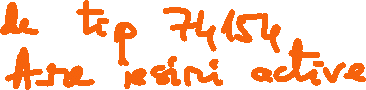 de tip 74154
Are ieșiri active